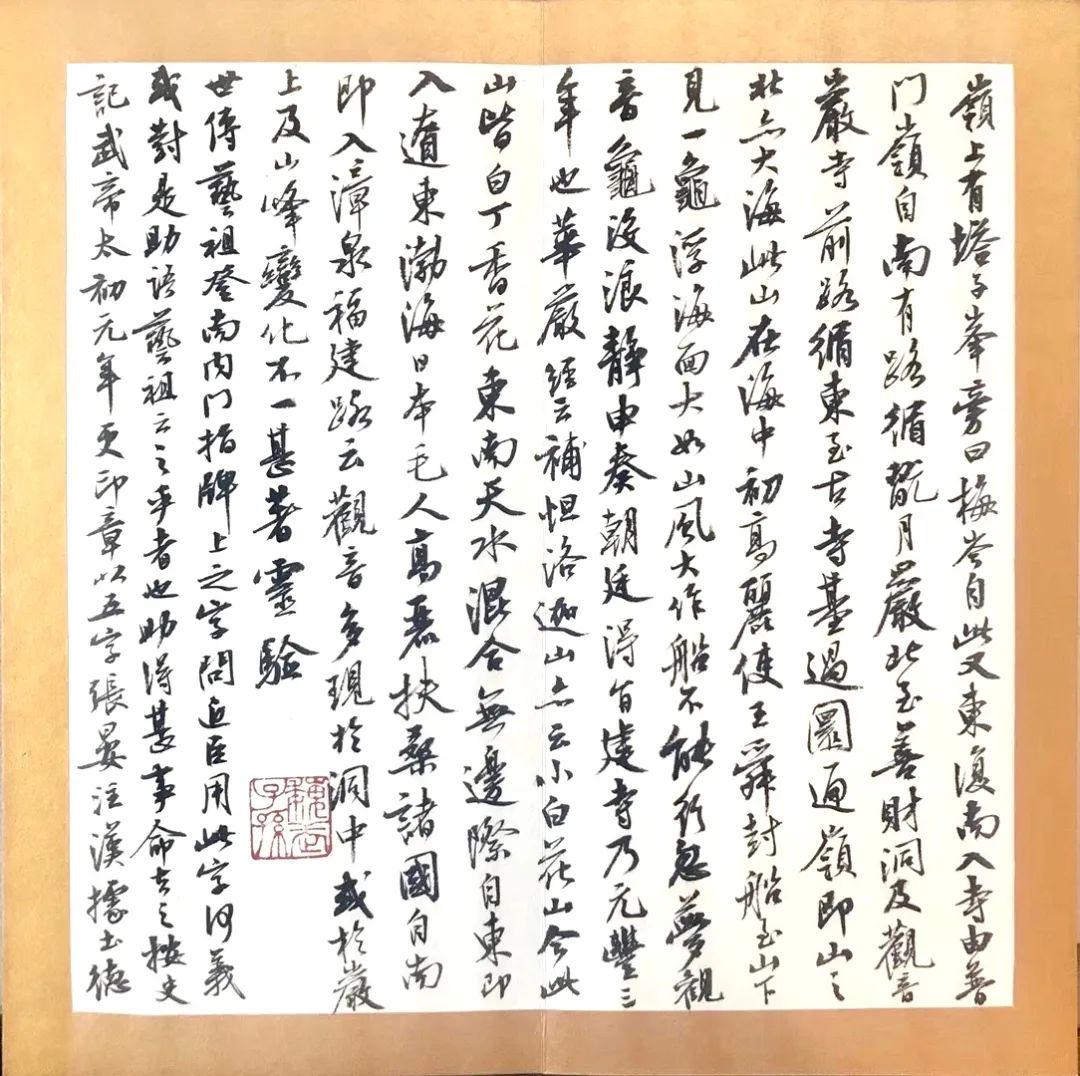 嶺上有塔子峯旁曰梅岑自此又東復南入寺由普
門嶺自南有路循翫月巖北至善財洞及觀音
巖寺前路循東至古寺基過圓通嶺即山之
北亦大海此山在海中初高麗使王舜封船至山下
見一龜浮海面大如山風大作船不能行忽夢觀
音龜没浪静申奏朝廷得旨建寺乃元豐三
年也華嚴經云補怛洛迦山亦云小白花山今此
山皆白丁香花東南天水混合無邊際自東即
入遼東渤海日本毛人高麗扶桑諸國自南
即入漳泉福建路云觀音多現於洞中或於巖
上及山峰變化不一甚著靈驗
世傳藝祖登南内門指牌上之字問近臣用此字何義
或對是助語藝祖云之乎者也助得甚事命去之按史
記武帝太初元年更印章以五字張晏注漢據土德